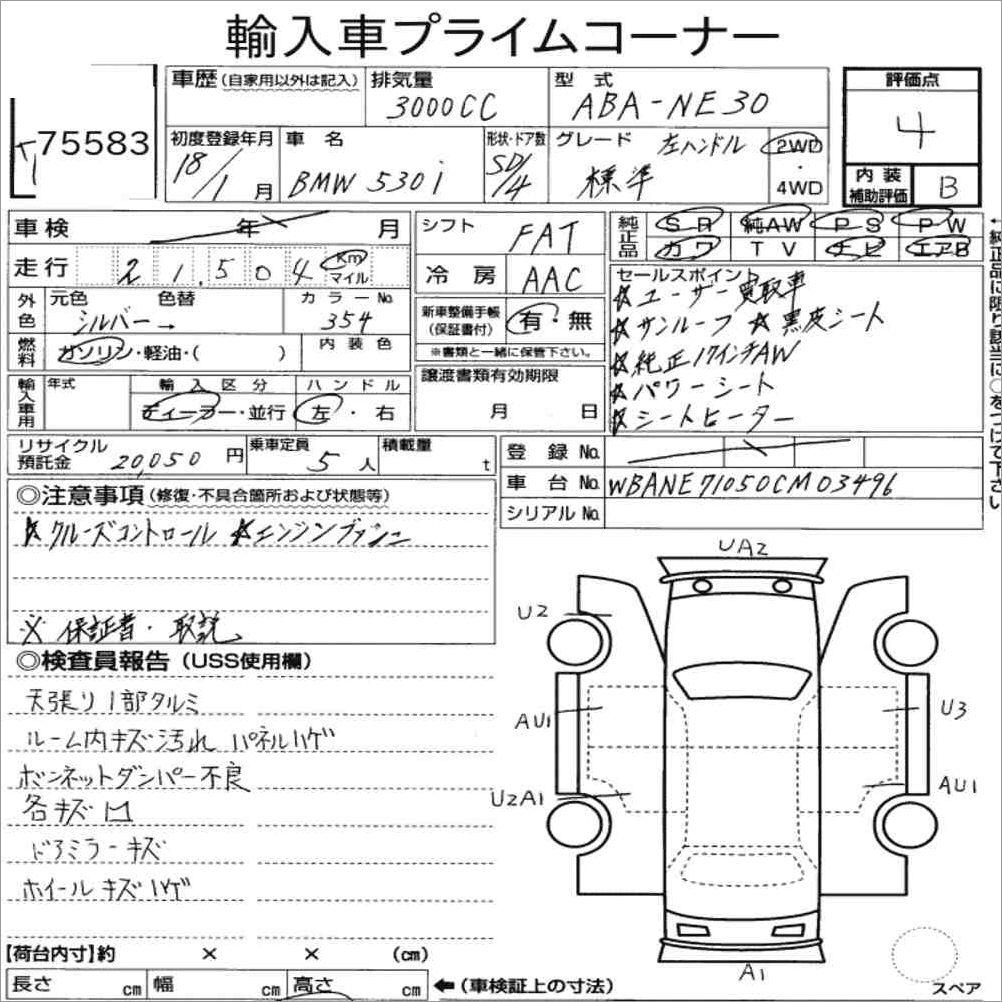 輸入車プライムコーナー
75583
車歴(自家用以外は記入)
排気量
3000CC
型式
ABA-NE30
評価点
4
内装
補助評価
B
初度登録年月
18/1月
車名
BMW 530i
形状・ドア数
SD/4
グレード
左ハンドル
標準
2WD
・
4WD
車検 年 月
走行 21,504 Km
マイル
外色
元色 色替
シルバー→
カラーNo
354
燃料
ガソリン・軽油・( )
内装色
輸入車用
年式
輸入区分
ディーラー・並行
ハンドル
左・右
シフト
FAT
冷房
AAC
新車整備手帳
(保証書付)
有・無
※書類と一緒に保管下さい。
譲渡書類有効期限
月 日
純正品
SR 純AW PS PW
カワ TV ナビ エアB
セールスポイント
☆ユーザー買取車
☆サンルーフ ☆黒皮シート
☆純正17インチAW
☆パワーシート
☆シートヒーター
←純正品に限り該当に○をつけて下さい
リサイクル
預託金
20,050円
乗車定員
5人
積載量
t
登録No.
車台No. WBANE71050CM03496
シリアルNo.
◎注意事項(修復・不具合箇所および状態等)
☆クルーズコントロール ☆エンジンプッシュ
※保証書・取説
◎検査員報告(USS使用欄)
天張り1部タルミ
ルーム内キズ汚れ パネルハゲ
ボンネットダンパー不良
各キズ凹
ドアミラーキズ
ホイールキズハゲ
UA2
U2
AU1
U3
U2A1
AU1
A1
スペア
【荷台内寸】約 × × (cm)
長さ cm 幅 cm 高さ cm ←(車検証上の寸法)